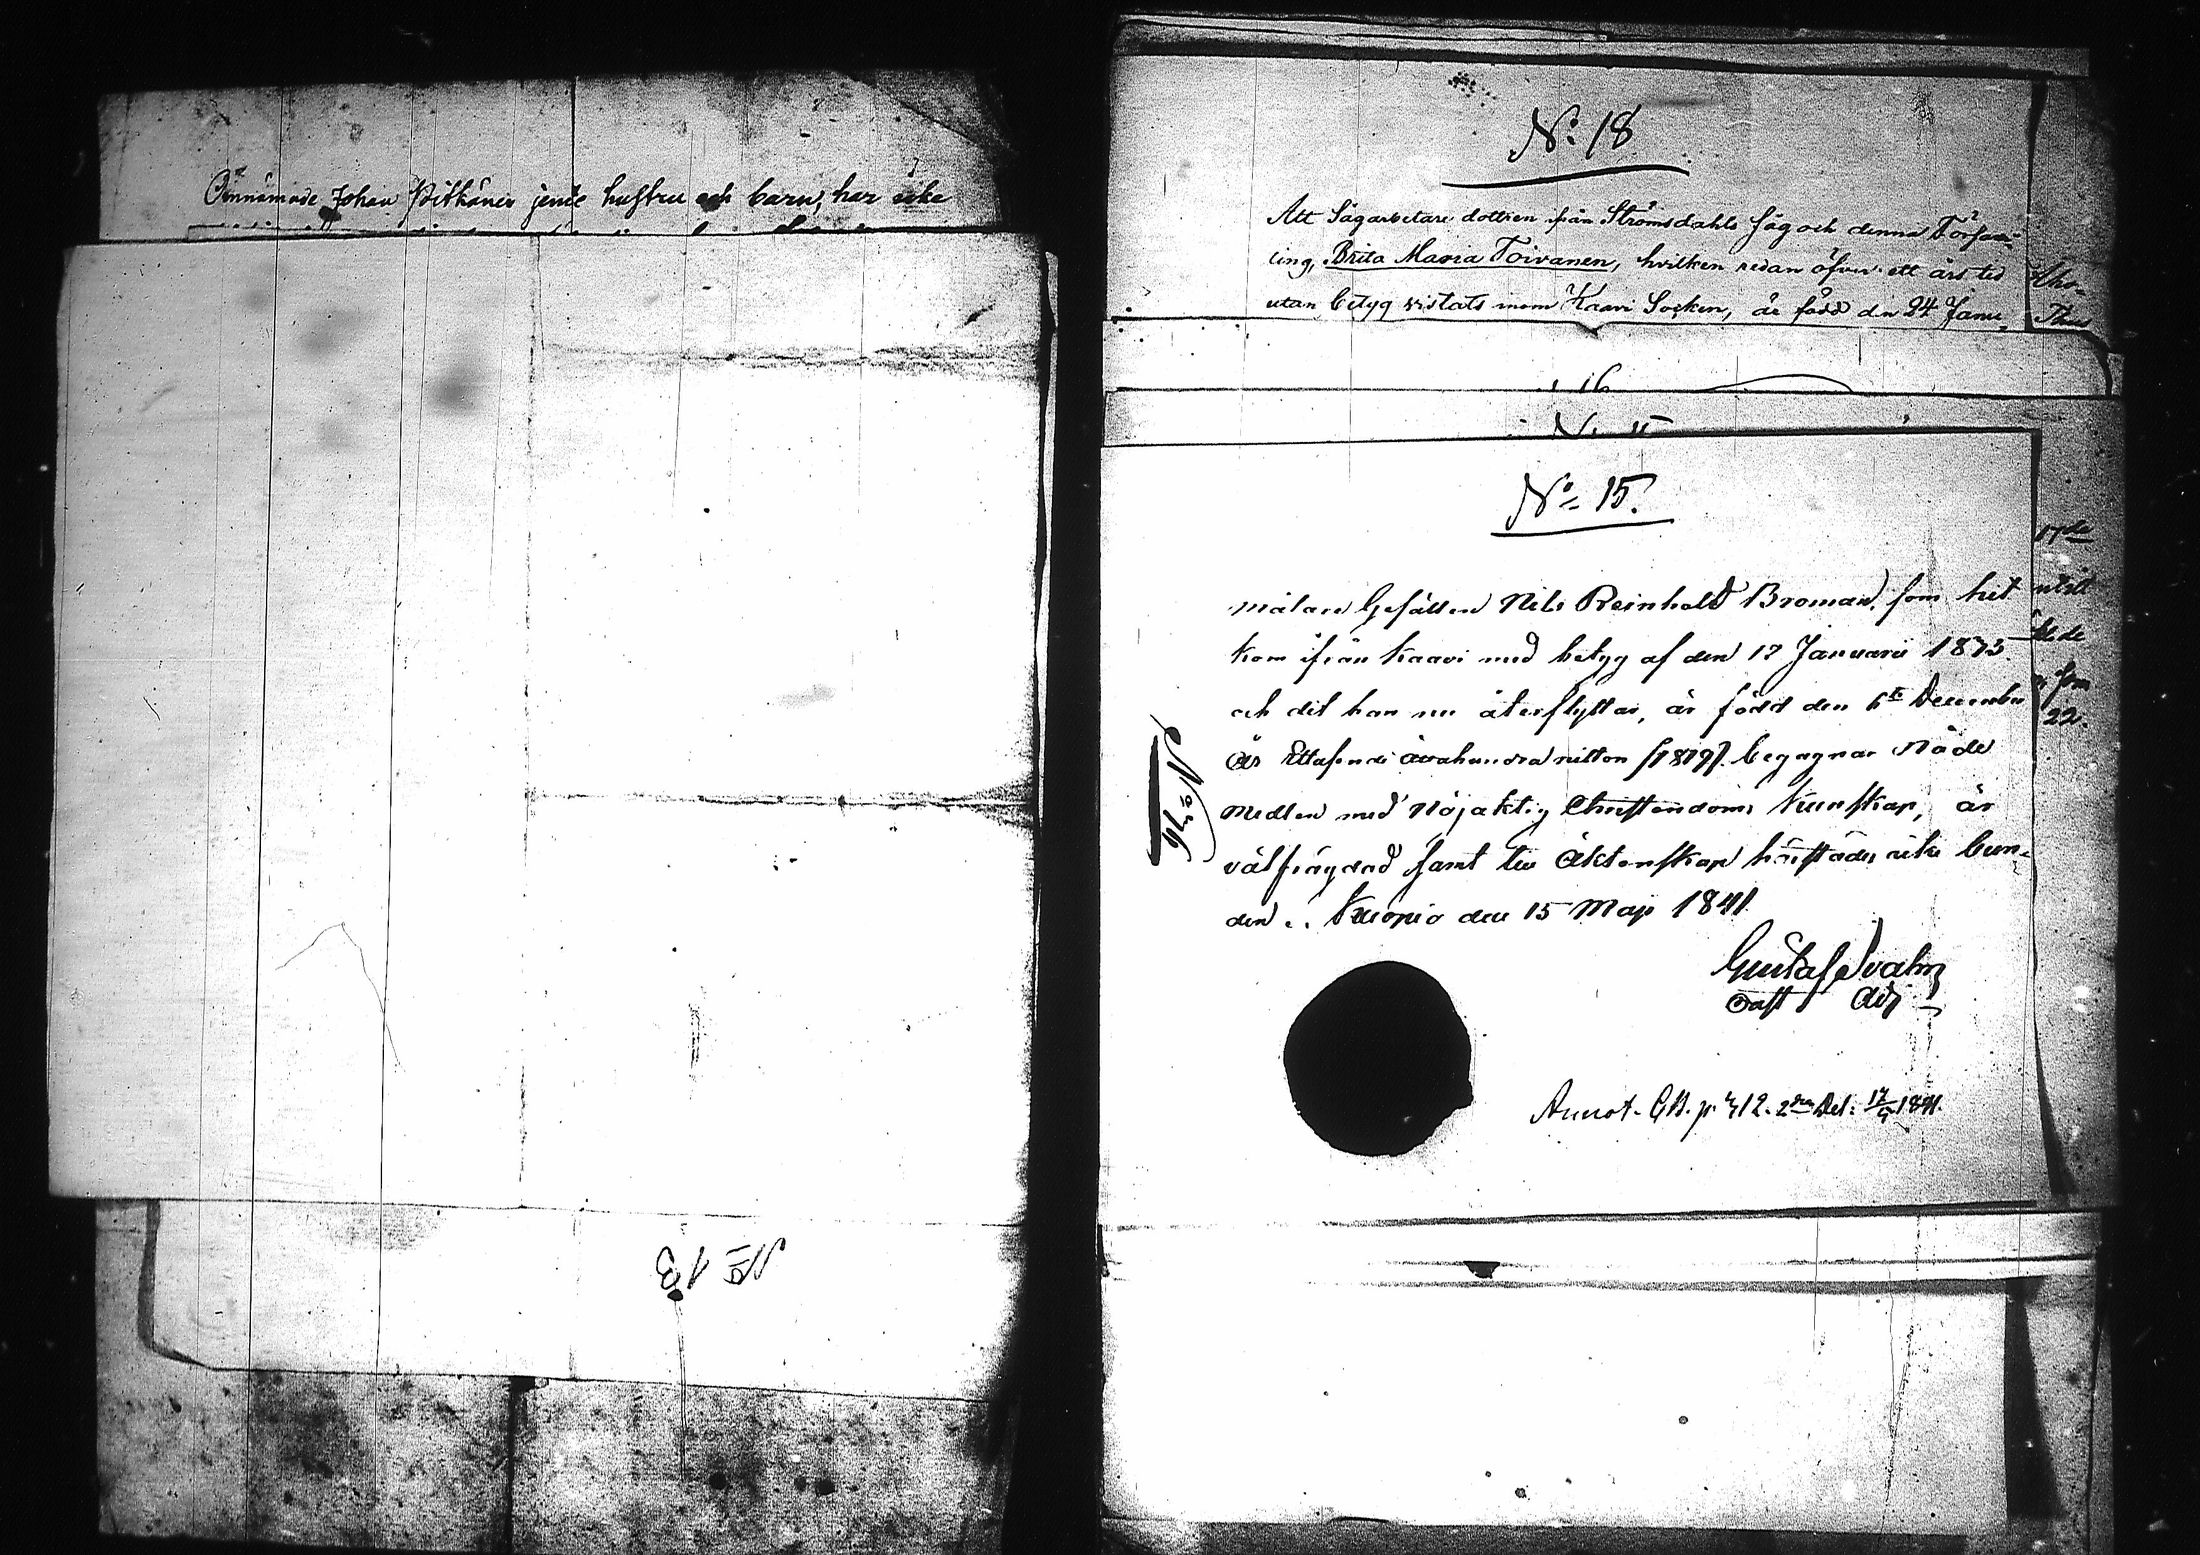 Omnämnde Johan Pitkänen jemte hustru och barn, har icke
No 13
No 18
Att Sågarbetare dottren från Strömsdahls såg och denna Försam-
ling, Brita Maria Toivanen, hvilken redan öfver ett års tid
utan betyg vistats inom Kaavi Socken, är född den 24 Janu-
16
No 15.
målare Gesällen Nils Reinhold Broman, som hit
kom ifrån Kaavi med betyg af den 17 Januarii 1835
och dit han nu återflyttar, är född den 6te December
År Ettusende åttahundra nitton (1819). begagnar Nåde
medlen med Nöjaktig Christendoms kunskap, är
välfrägdad samt till Äktenskap härstädes icke bun-
den. Kuopio den 15 Maji 1841
Gustaf Svahn
Past Adj
Annot. C.B. p. 412. 2dra Del. 1841.
17de
22.